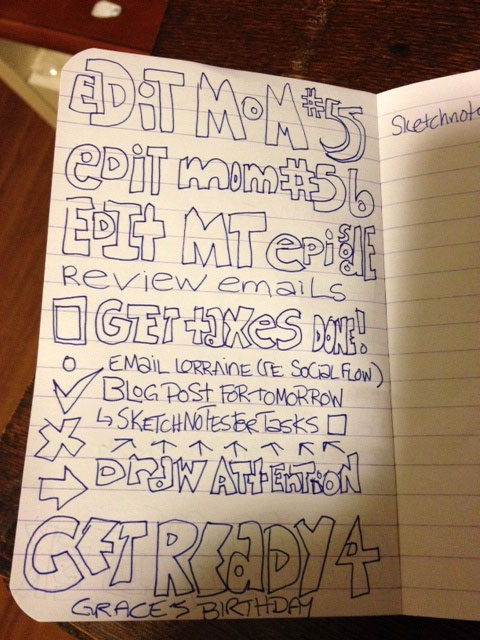 EDIT MOM #55
EDIT mom #56
EDIt MT epiSODE
Review emails
GET taxes DONE!
EMAIL LORRAINE (RE SOCIAL FLOW)
BLOG POST FOR TOMORROW
↳ SKETCHNOTES FOR TASKS
DRAW ATTENTION
GET READY 4
GRACE'S BIRTHDAY
Sketchnote